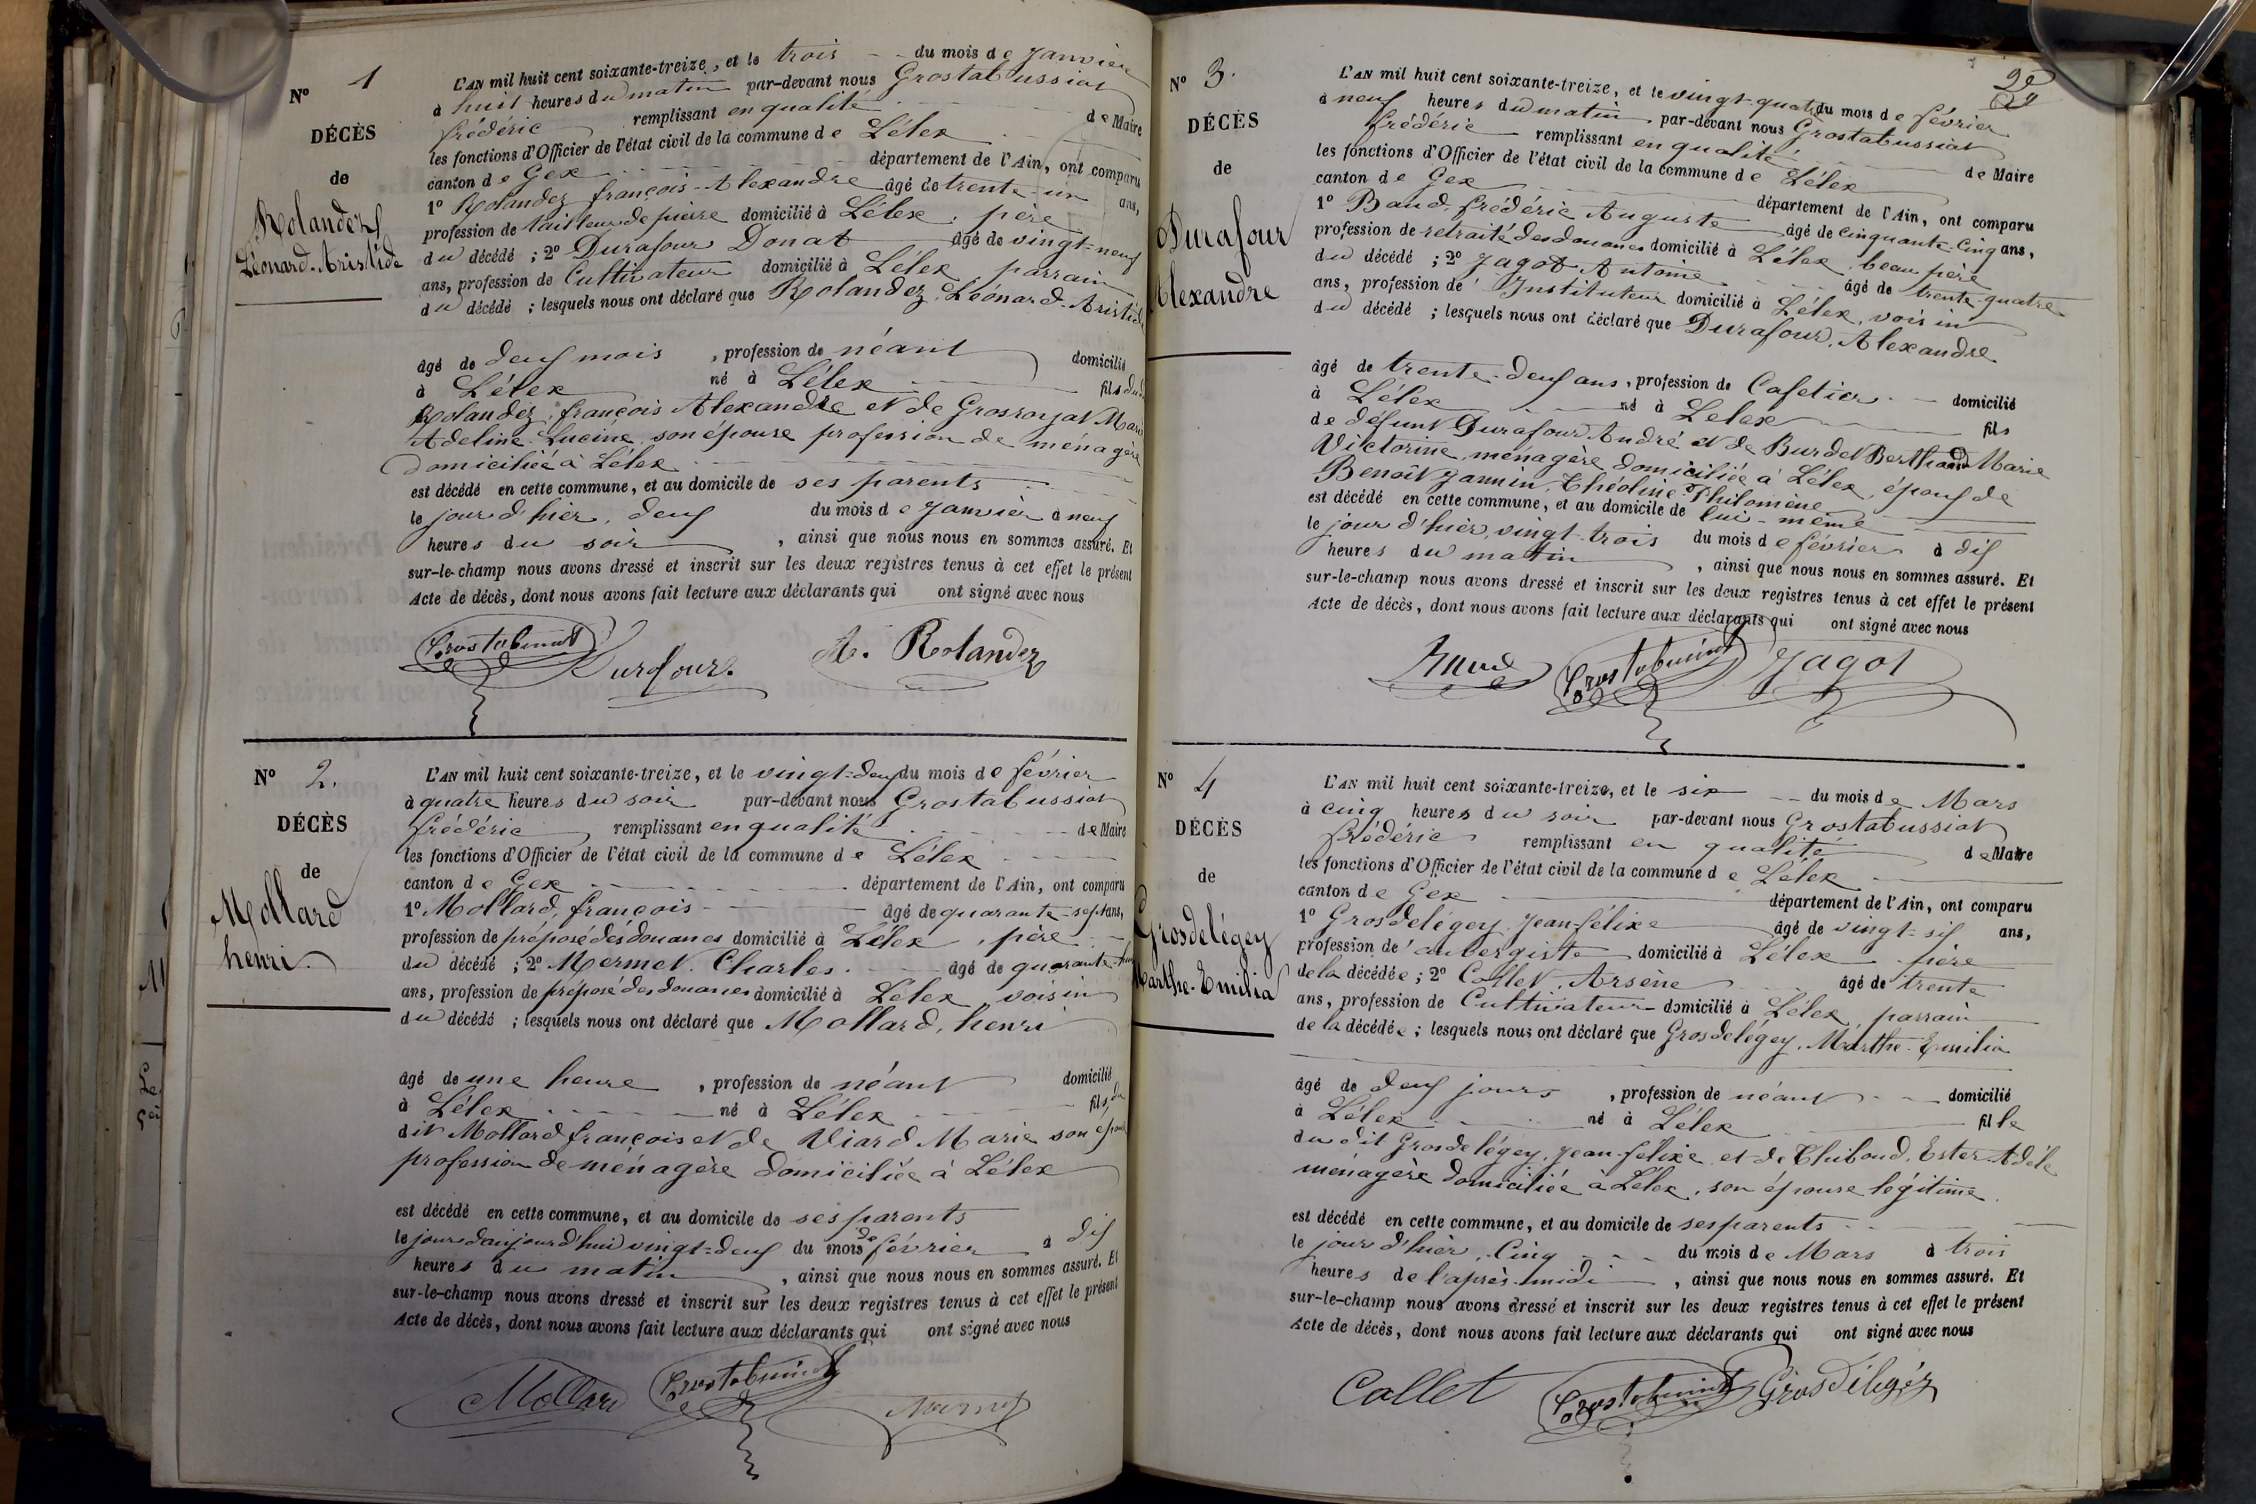 N° 1
DÉCÈS
de
Rolandez
Léonard-Aristide
L'AN mil huit cent soixante-treize, et le trois du mois de Janvier
à huit heures du matin par-devant nous Grostabussiat
frédéric remplissant en qualité de Maire
les fonctions d'Officier de l'état civil de la commune de Lélex
canton de Gex département de l'Ain, ont comparu
1° Rolandez françois-Alexandre âgé de trente-un ans,
profession de tailleur de pierre domicilié à Lélex, père
du décédé ; 2° Durafour Donat âgé de vingt-neuf
ans, profession de Cultivateur domicilié à Lélex, parrain
du décédé ; lesquels nous ont déclaré que Rolandez, Léonard-Aristide
âgé de deux mois, profession de néant domicilié
à Lélex né à Lélex fils du
Rolandez, françois Alexandre et de Grosroyat Marie
Adeline Lucine son épouse profession de ménagère
domiciliée à Lélex
est décédé en cette commune, et au domicile de ses parents
le jour d'hier, deux du mois de Janvier à neuf
heures du soir, ainsi que nous nous en sommes assuré. Et
sur-le-champ nous avons dressé et inscrit sur les deux registres tenus à cet effet le présent
Acte de décès, dont nous avons fait lecture aux déclarants qui ont signé avec nous
Grostabussiat Durafour A. Rolandez
N° 2.
DÉCÈS
de
Mollard
henri
L'AN mil huit cent soixante-treize, et le vingt-deux du mois de février
à quatre heures du soir par-devant nous Grostabussiat
frédéric remplissant en qualité de Maire
les fonctions d'Officier de l'état civil de la commune de Lélex
canton de Gex département de l'Ain, ont comparu
1° Mollard, françois âgé de quarante-sept ans,
profession de préposé des douanes domicilié à Lélex, père
du décédé ; 2° Mermet Charles. âgé de quarante
ans, profession de préposé des douanes domicilié à Lélex, voisin
du décédé ; lesquels nous ont déclaré que Mollard, henri
âgé de une heure, profession de néant domicilié
à Lélex né à Lélex fils du
dit Mollard françois et de Viard Marie son épouse
profession de ménagère domiciliée à Lélex
est décédé en cette commune, et au domicile de ses parents
le jour d'aujourd'hui vingt-deux du mois de février à dix
heures du matin, ainsi que nous nous en sommes assuré. Et
sur-le-champ nous avons dressé et inscrit sur les deux registres tenus à cet effet le présent
Acte de décès, dont nous avons fait lecture aux déclarants qui ont signé avec nous
Mollard Grostabussiat Mermet
N° 3.
DÉCÈS
de
Durafour
Alexandre
L'AN mil huit cent soixante-treize, et le vingt-quatre du mois de février
à neuf heures du matin par-devant nous Grostabussiat
frédéric remplissant en qualité de Maire
les fonctions d'Officier de l'état civil de la commune de Lélex
canton de Gex département de l'Ain, ont comparu
1° Baud, frédéric Auguste âgé de cinquante-cinq ans,
profession de retraité des douanes domicilié à Lélex, beau père
du décédé ; 2° Jagot Antoine âgé de trente-quatre
ans, profession d'Instituteur domicilié à Lélex, voisin
du décédé ; lesquels nous ont déclaré que Durafour, Alexandre
âgé de trente-deux ans, profession de Cafetier domicilié
à Lélex né à Lélex fils
de défunt Durafour André et de Burdet Berthand Marie
Victorine, ménagère domiciliée à Lélex, époux de
Benoit Jannin, Théoline Philomène
est décédé en cette commune, et au domicile de lui-même
le jour d'hier, vingt-trois du mois de février à dix
heures du matin, ainsi que nous nous en sommes assuré. Et
sur-le-champ nous avons dressé et inscrit sur les deux registres tenus à cet effet le présent
Acte de décès, dont nous avons fait lecture aux déclarants qui ont signé avec nous
Baud Grostabussiat Jagot
N° 4
DÉCÈS
de
Grosdelégey
Marthe-Emilia
L'AN mil huit cent soixante-treize, et le six du mois de Mars
à cinq heures du soir par-devant nous Grostabussiat
frédéric remplissant en qualité de Maire
les fonctions d'Officier de l'état civil de la commune de Lélex
canton de Gex département de l'Ain, ont comparu
1° Grosdelégey, Jean-félixe âgé de vingt-six ans,
profession de aubergiste domicilié à Lélex père
de la décédée ; 2° Collet, Arsène âgé de trente
ans, profession de Cultivateur domicilié à Lélex, parrain
de la décédée ; lesquels nous ont déclaré que Grosdelégey, Marthe-Emilia
âgé de deux jours, profession de néant domicilié
à Lélex né à Lélex fille
du dit Grosdelégey, Jean-félixe et de Thiboud, Ester Adéle
ménagère domiciliée à Lélex, son épouse légitime.
est décédé en cette commune, et au domicile de ses parents
le jour d'hier, Cinq du mois de Mars à trois
heures de l'après-midi, ainsi que nous nous en sommes assuré. Et
sur-le-champ nous avons dressé et inscrit sur les deux registres tenus à cet effet le présent
Acte de décès, dont nous avons fait lecture aux déclarants qui ont signé avec nous
Collet Grostabussiat Grosdelégéy